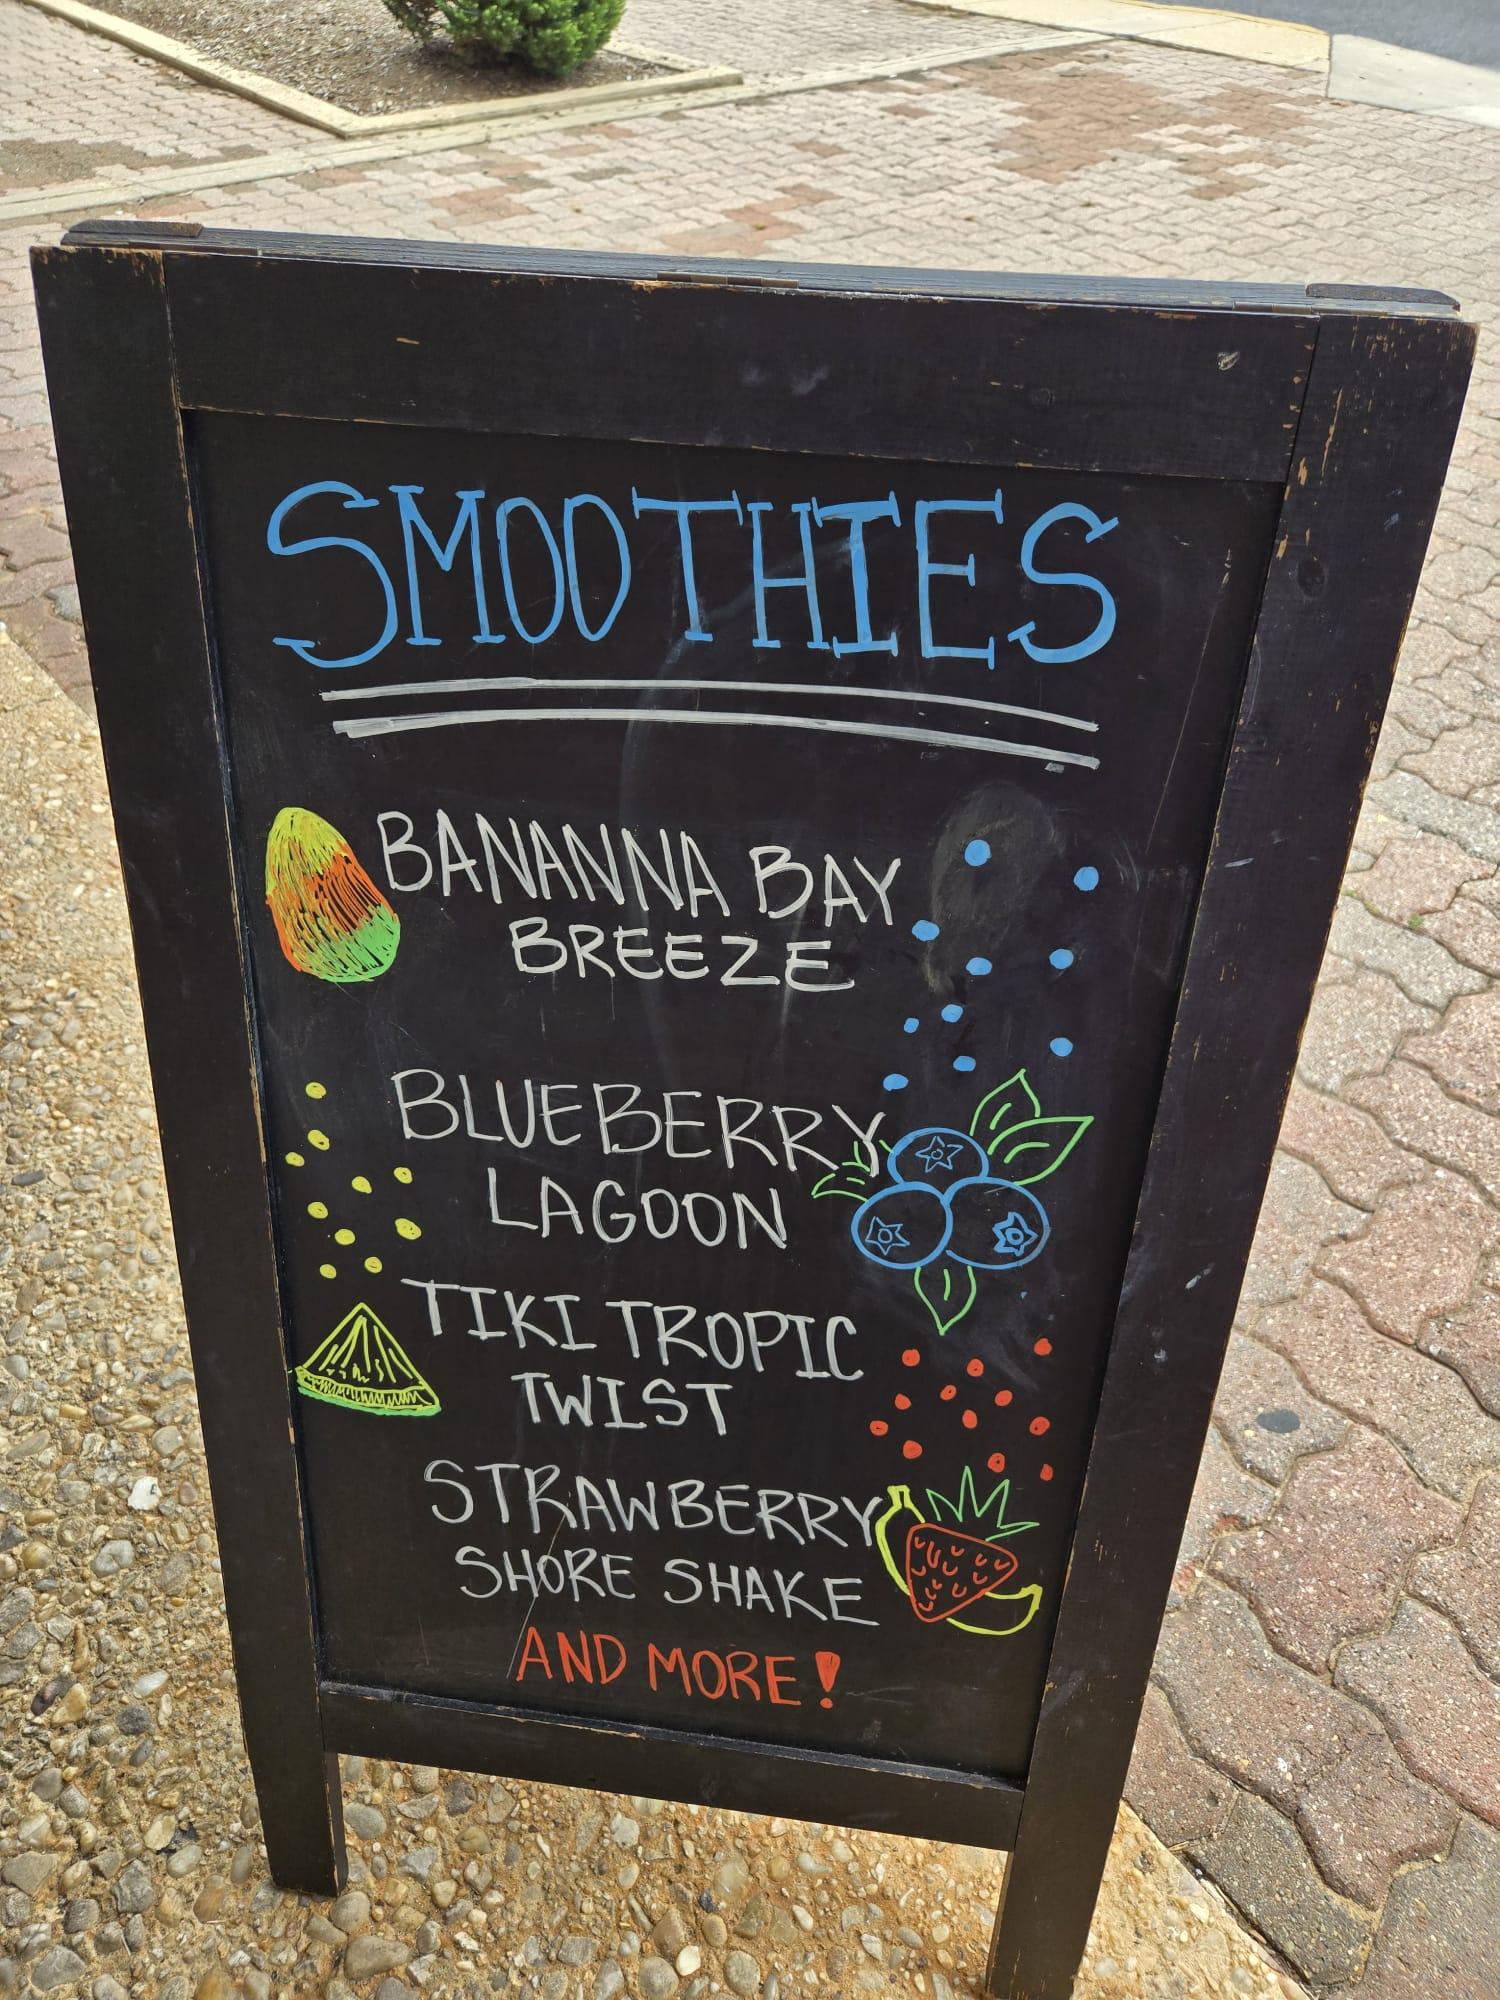 SMOOTHIES
BANANNA BAY
BREEZE
BLUEBERRY
LAGOON
TIKI TROPIC
TWIST
STRAWBERRY
SHORE SHAKE
AND MORE!